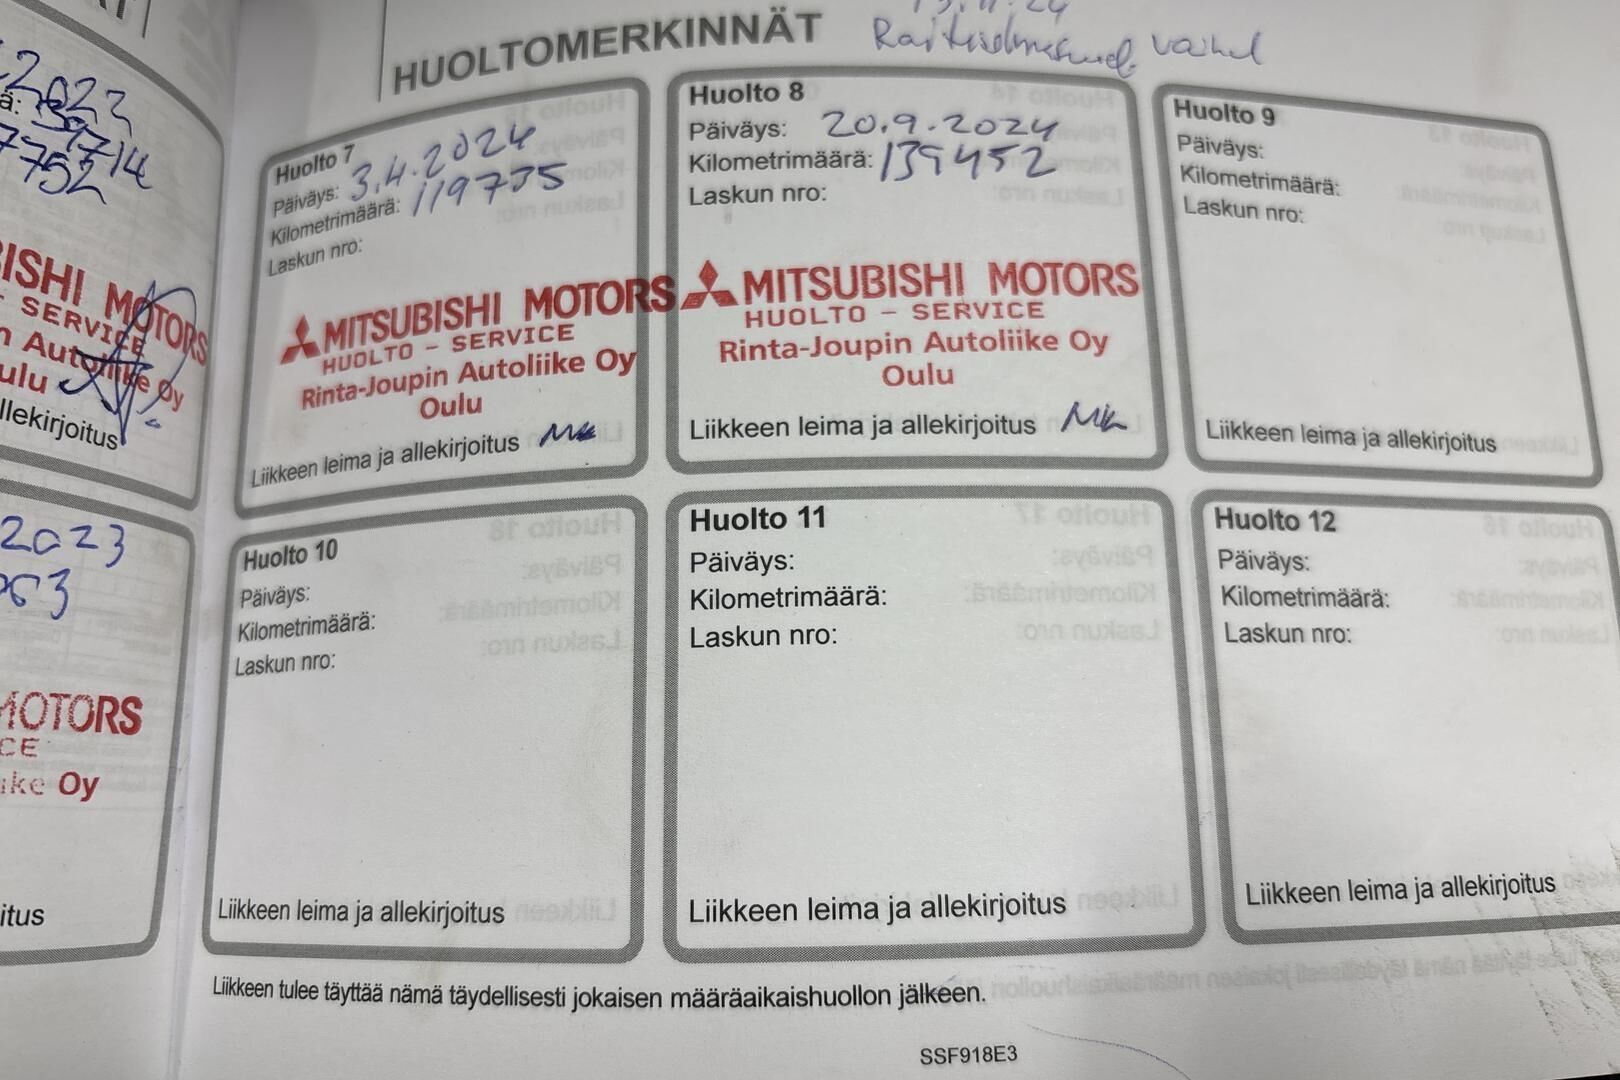 HUOLTOMERKINNÄT
.11.24
vaihd
2023
7752
ISHI MOTORS
SERVICE
n Autoliike Oy
ulu
llekirjoitus
Huolto 7
Päiväys: 3.4.2024
Kilometrimäärä: 119735
Laskun nro:
MITSUBISHI MOTORS
HUOLTO - SERVICE
Rinta-Joupin Autoliike Oy
Oulu
Liikkeen leima ja allekirjoitus
Huolto 8
Päiväys: 20.9.2024
Kilometrimäärä: 139452
Laskun nro:
MITSUBISHI MOTORS
HUOLTO - SERVICE
Rinta-Joupin Autoliike Oy
Oulu
Liikkeen leima ja allekirjoitus
Huolto 9
Päiväys:
Kilometrimäärä:
Laskun nro:
Liikkeen leima ja allekirjoitus
2023
MOTORS
CE
ike Oy
itus
Huolto 10
Päiväys:
Kilometrimäärä:
Laskun nro:
Liikkeen leima ja allekirjoitus
Huolto 11
Päiväys:
Kilometrimäärä:
Laskun nro:
Liikkeen leima ja allekirjoitus
Huolto 12
Päiväys:
Kilometrimäärä:
Laskun nro:
Liikkeen leima ja allekirjoitus
Liikkeen tulee täyttää nämä täydellisesti jokaisen määräaikaishuollon jälkeen.
SSF918E3